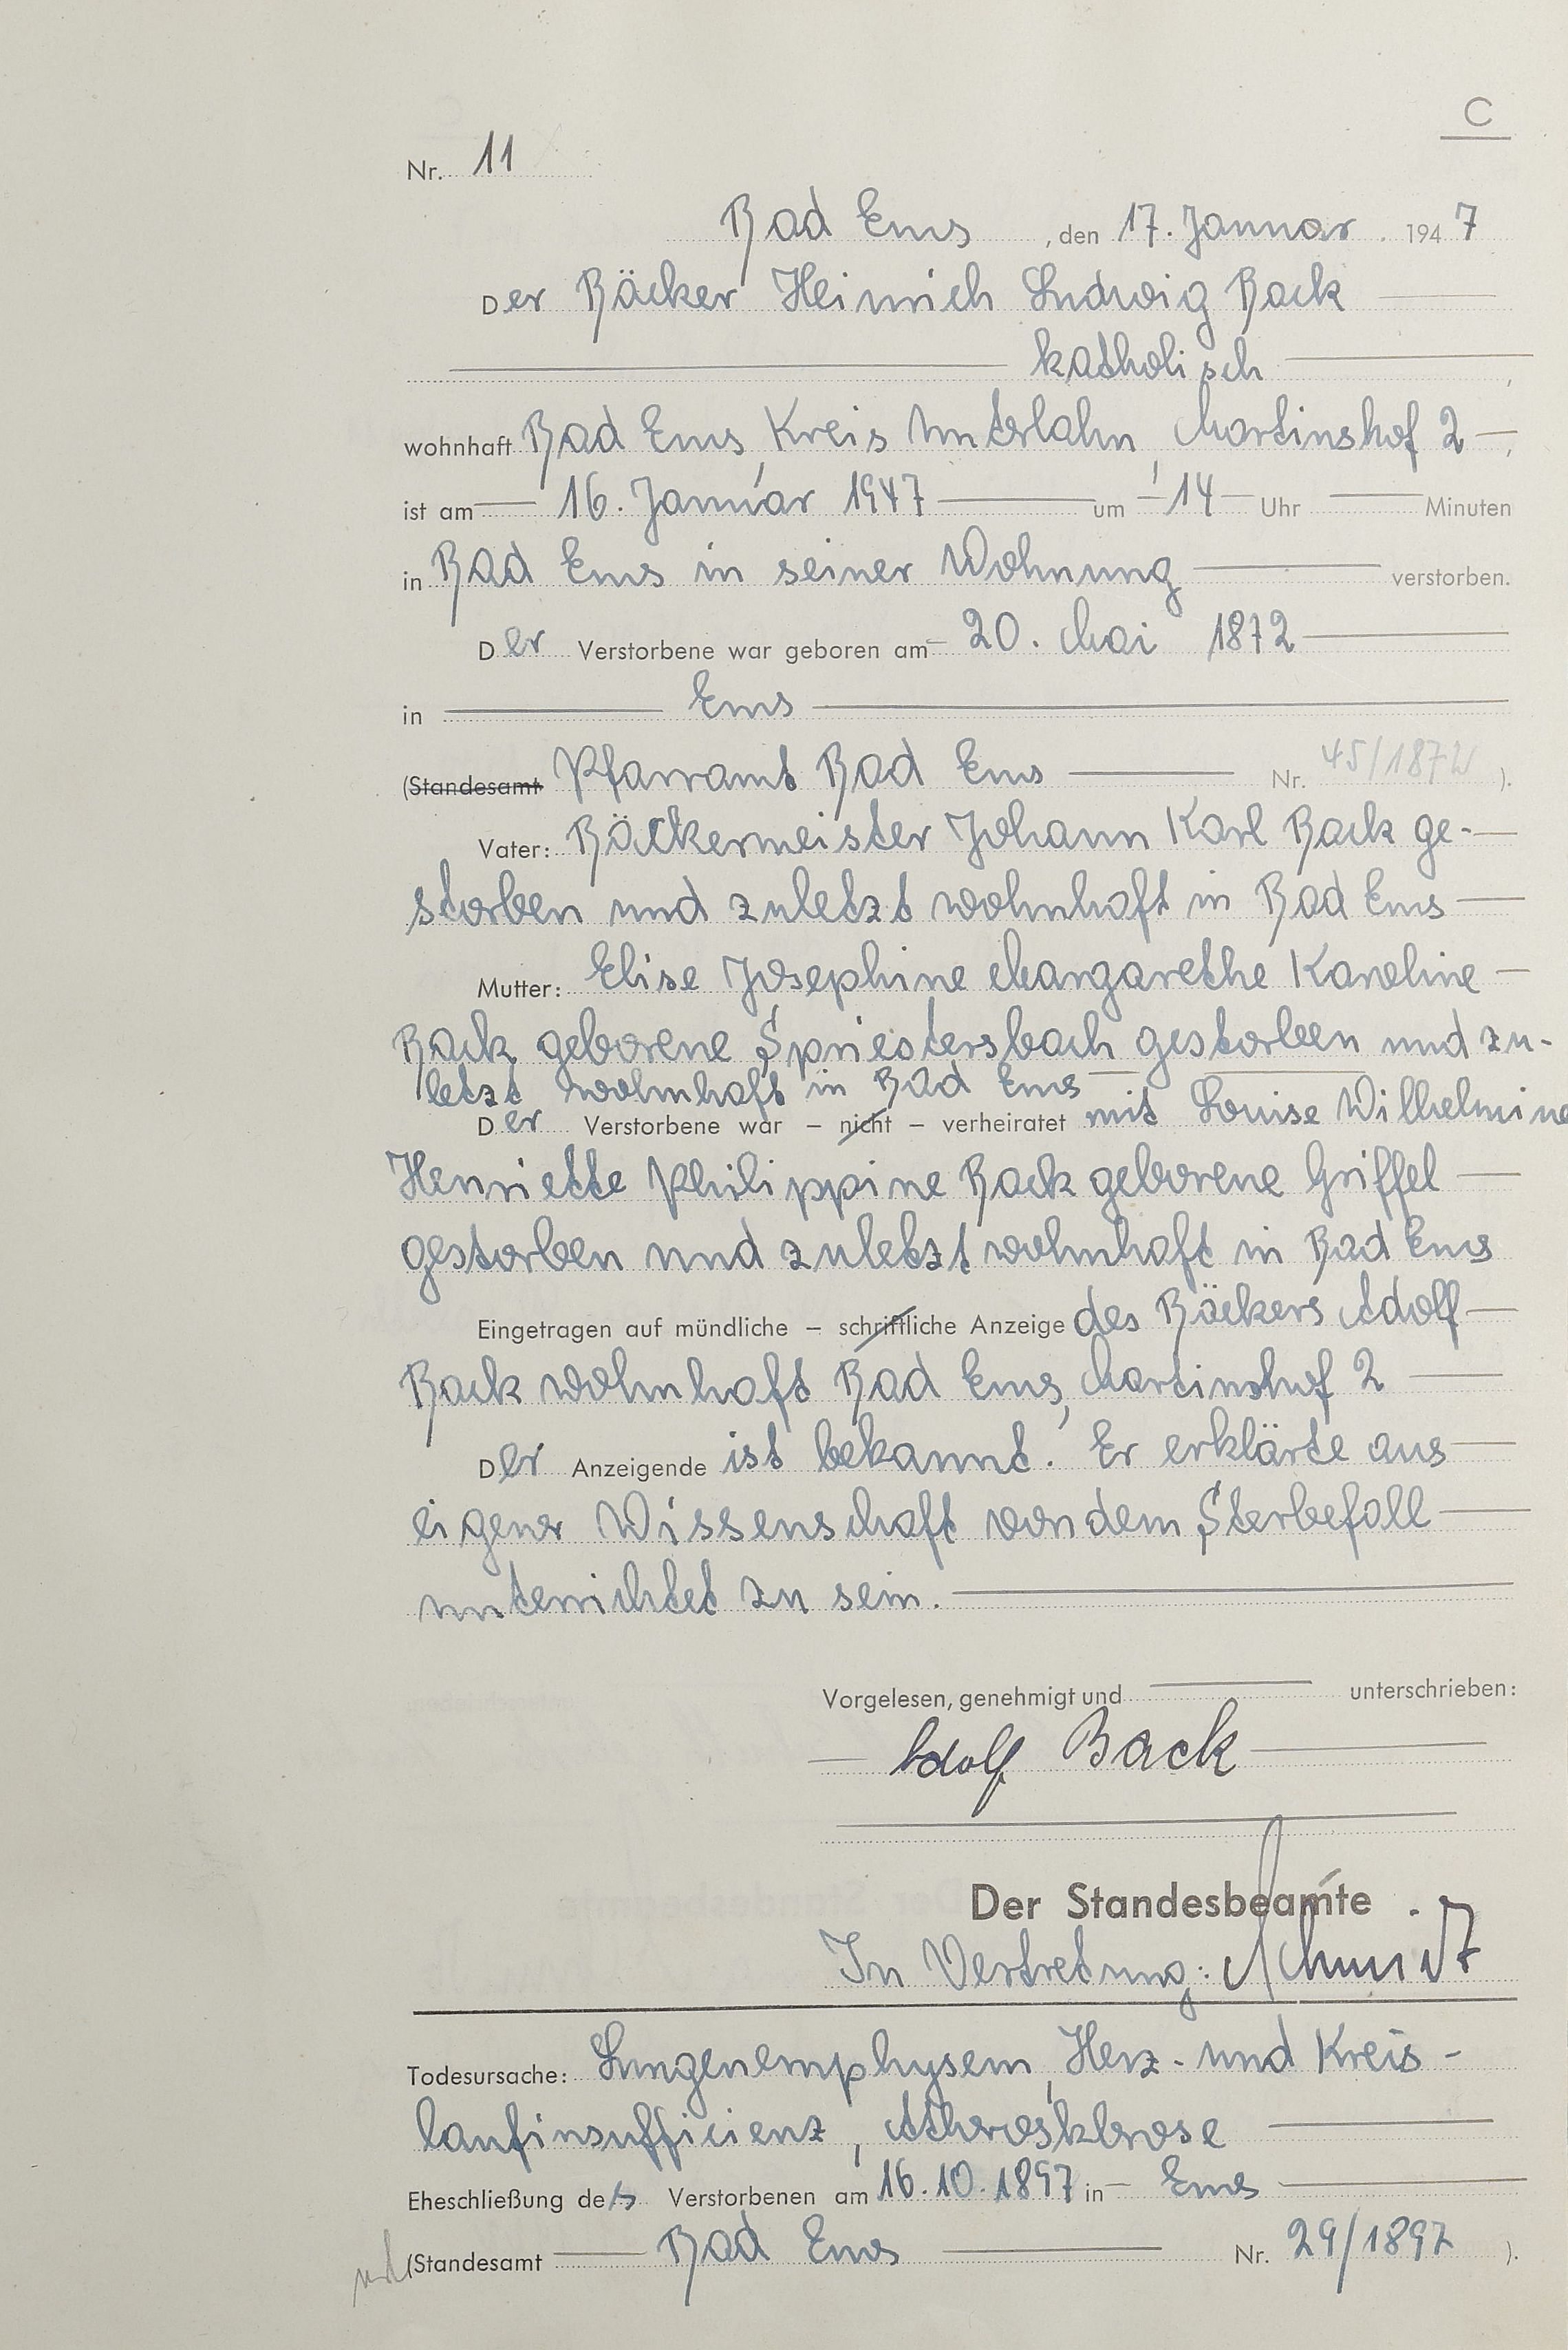 C
Nr. 11
Bad Ems, den 17. Januar 1947
Der Bäcker Heinrich Ludwig Back
katholisch,
wohnhaft Bad Ems, Kreis Unterlahn, Martinshof 2,
ist am 16. Januar 1947 um 14 Uhr Minuten
in Bad Ems in seiner Wohnung verstorben.
Der Verstorbene war geboren am 20. Mai 1872
in Ems
(Standesamt Pfarramt Bad Ems Nr. 45/1872).
Vater: Bäckermeister Johann Karl Back ge-
storben und zuletzt wohnhaft in Bad Ems
Mutter: Elise Josephine Margarethe Karoline
Back geborene Spriestersbach gestorben und zu-
letzt wohnhaft in Bad Ems
Der Verstorbene war – nicht – verheiratet mit Louise Wilhelmine
Henriette Philippine Back geborene Griffel
gestorben und zuletzt wohnhaft in Bad Ems
Eingetragen auf mündliche – schriftliche Anzeige des Bäckers Adolf
Back wohnhaft Bad Ems, Martinshof 2
Der Anzeigende ist bekannt. Er erklärte aus
eigener Wissenschaft von dem Sterbefall
unterrichtet zu sein.
Vorgelesen, genehmigt und unterschrieben:
Adolf Back
Der Standesbeamte
In Vertretung: Schmidt
Todesursache: Lungenemphysem, Herz- und Kreis-
laufinsufficienz, Atherosklerose
Eheschließung des Verstorbenen am 16.10.1897 in Ems
(Standesamt Bad Ems Nr. 29/1897).